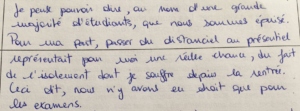 Je peux pouvoir dire, au nom d'une grande
majorité d'étudiants, que nous sommes épuisé.
Pour ma part, passer du distanciel au présentiel
représentait pour moi une réelle chance, du fait
de l'isolement dont je souffre depuis la rentrée.
Ceci dit, nous n'y avons eu droit que pour
les examens.